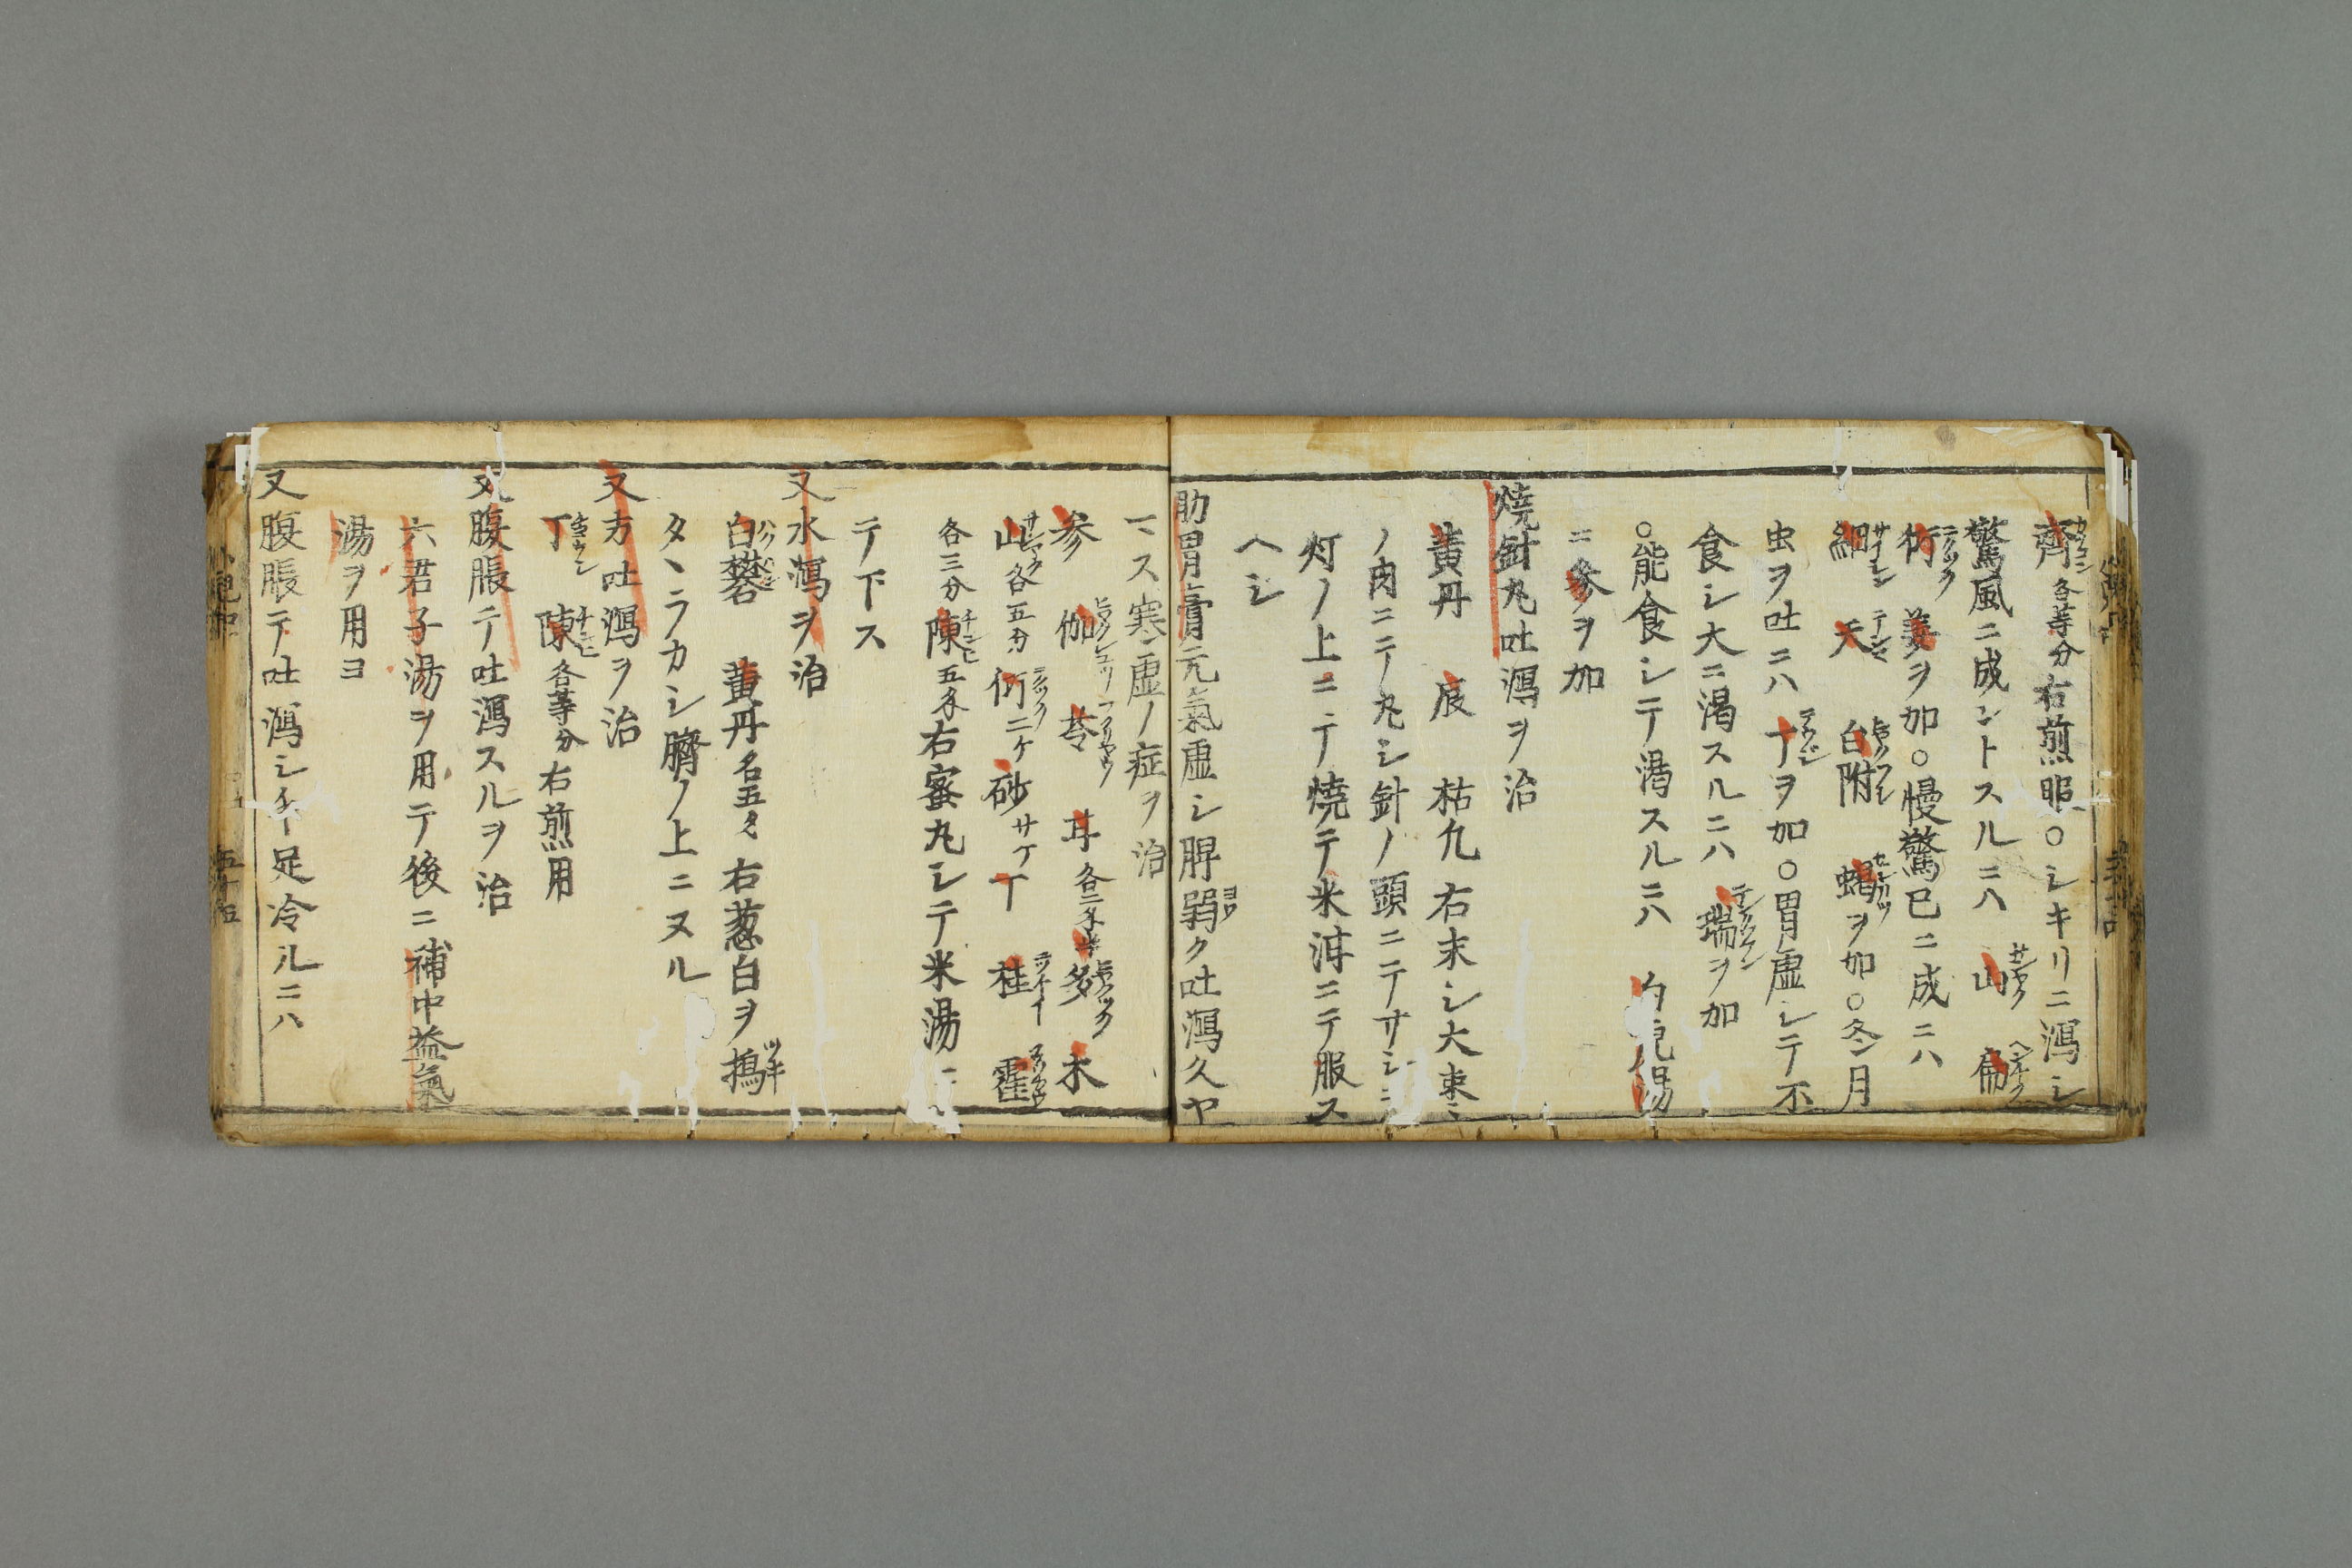 齊各等分右煎服○シキリニ瀉シ
驚風ニ成ントスルニハ 山 扁
術 姜ヲ加○慢驚已ニ成ニハ
細 天 白附 蝎ヲ加○冬月
虫ヲ吐ニハ 丁ヲ加○胃虚シテ不
食シ大ニ渇スルニハ 瑞ヲ加
○能食シテ渇スルニハ 湯
ニ参ヲ加
燒針丸吐瀉ヲ治
黄丹 辰 枯凢右末シ大棗
ノ肉ニテ丸シ針ノ頭ニテサシ
灯ノ上ニテ燒テ米泔ニテ服ス
ヘシ
助胃膏元氣虚シ脾弱ク吐瀉久ヤ
マス寒虚ノ症ヲ治
参 伽 苓 耳 各二 多 木
山各五分 術ニケ 砂サケ 丁 桂 霍
各三分 陳五 右蜜丸シテ米湯ニ
テ下ス
又水瀉ヲ治
白礬 黄丹 名五匁 右葱白ヲ搗
タヽラカシ臍ノ上ニヌル
又方吐瀉ヲ治
丁 陳各等分右煎用
又腹脹テ吐瀉スルヲ治
六君子湯ヲ用テ後ニ補中益氣
湯ヲ用ヨ
又腹脹テ吐瀉シ手足冷ルニハ